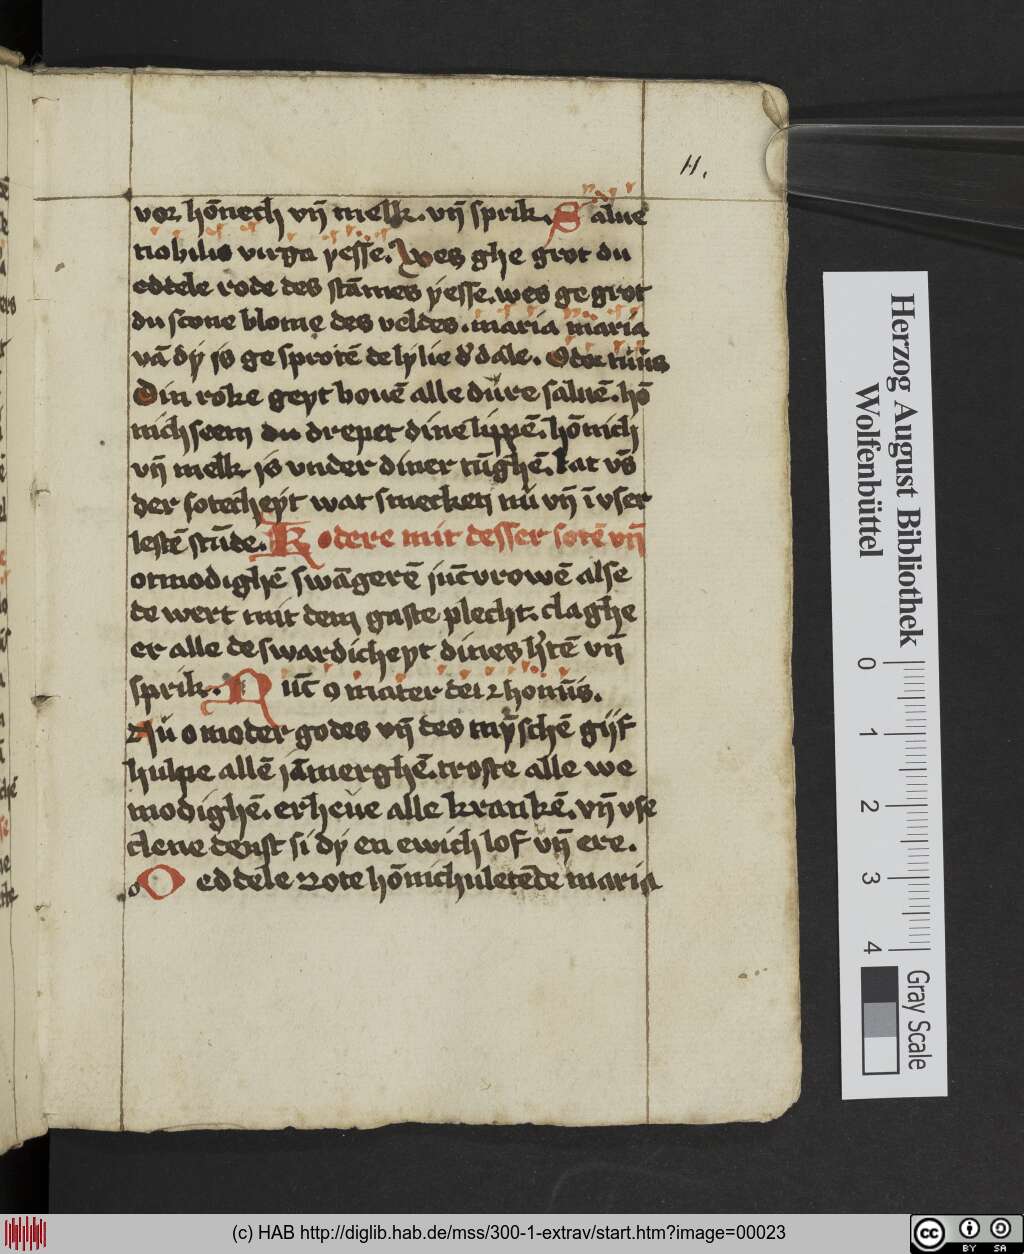 H.
vor hōnech vn̄ melk. vn̄ sprik. Sālue
nobilis virga yesse. Wes ghe grot du
eddele rode des stāmes yesse. wes ge grot
du scone blome des veldes. maria maria
vā dy is ge sprotē de lylie d' dale. Odor tuus
Din roke geyt bouē alle dure saluē. hō
nich seem du drepet dine lippē. hōnich
vn̄ melk is vnder diner tūghē. lat vs̄
der sotecheyt wat smecken nu vn̄ ī vser
lestē stūde. Kodere mit desser sotē vn̄
otmodighē swāgerē iūcvrowē alse
de wert mit dem gaste plecht. claghe
er alle de swardicheyt dines h'tē vn̄
sprik. Nūc o mater dei ⁊ homīs.
Nu o moder godes vn̄ des mȳschē gijf
hulpe allē iāmerghē. troste alle we
modighē. erheue alle krankē. vn̄ vse
clene denst si dy en ewich lof vn̄ ere.
O eddele rote hōnichuletēde maria
Herzog August Bibliothek
Wolfenbüttel
0 1 2 3 4
Gray Scale
(c) HAB http://diglib.hab.de/mss/300-1-extrav/start.htm?image=00023
cc BY SA